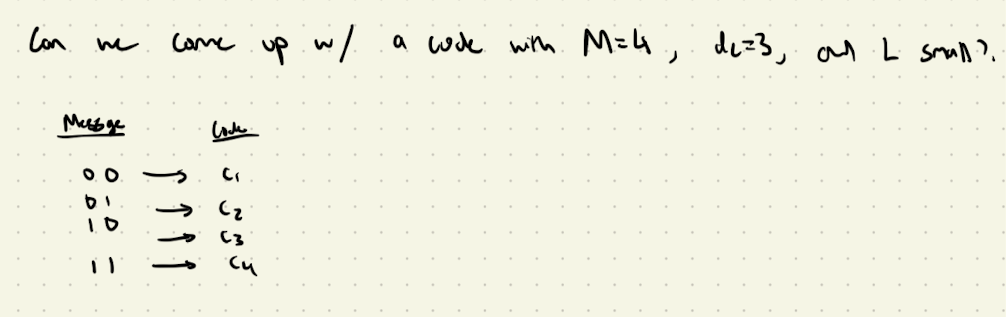 Can we come up w/ a code with M=4, dc=3, and L small?
Message Code
00 → c1
01 → c2
10 → c3
11 → c4